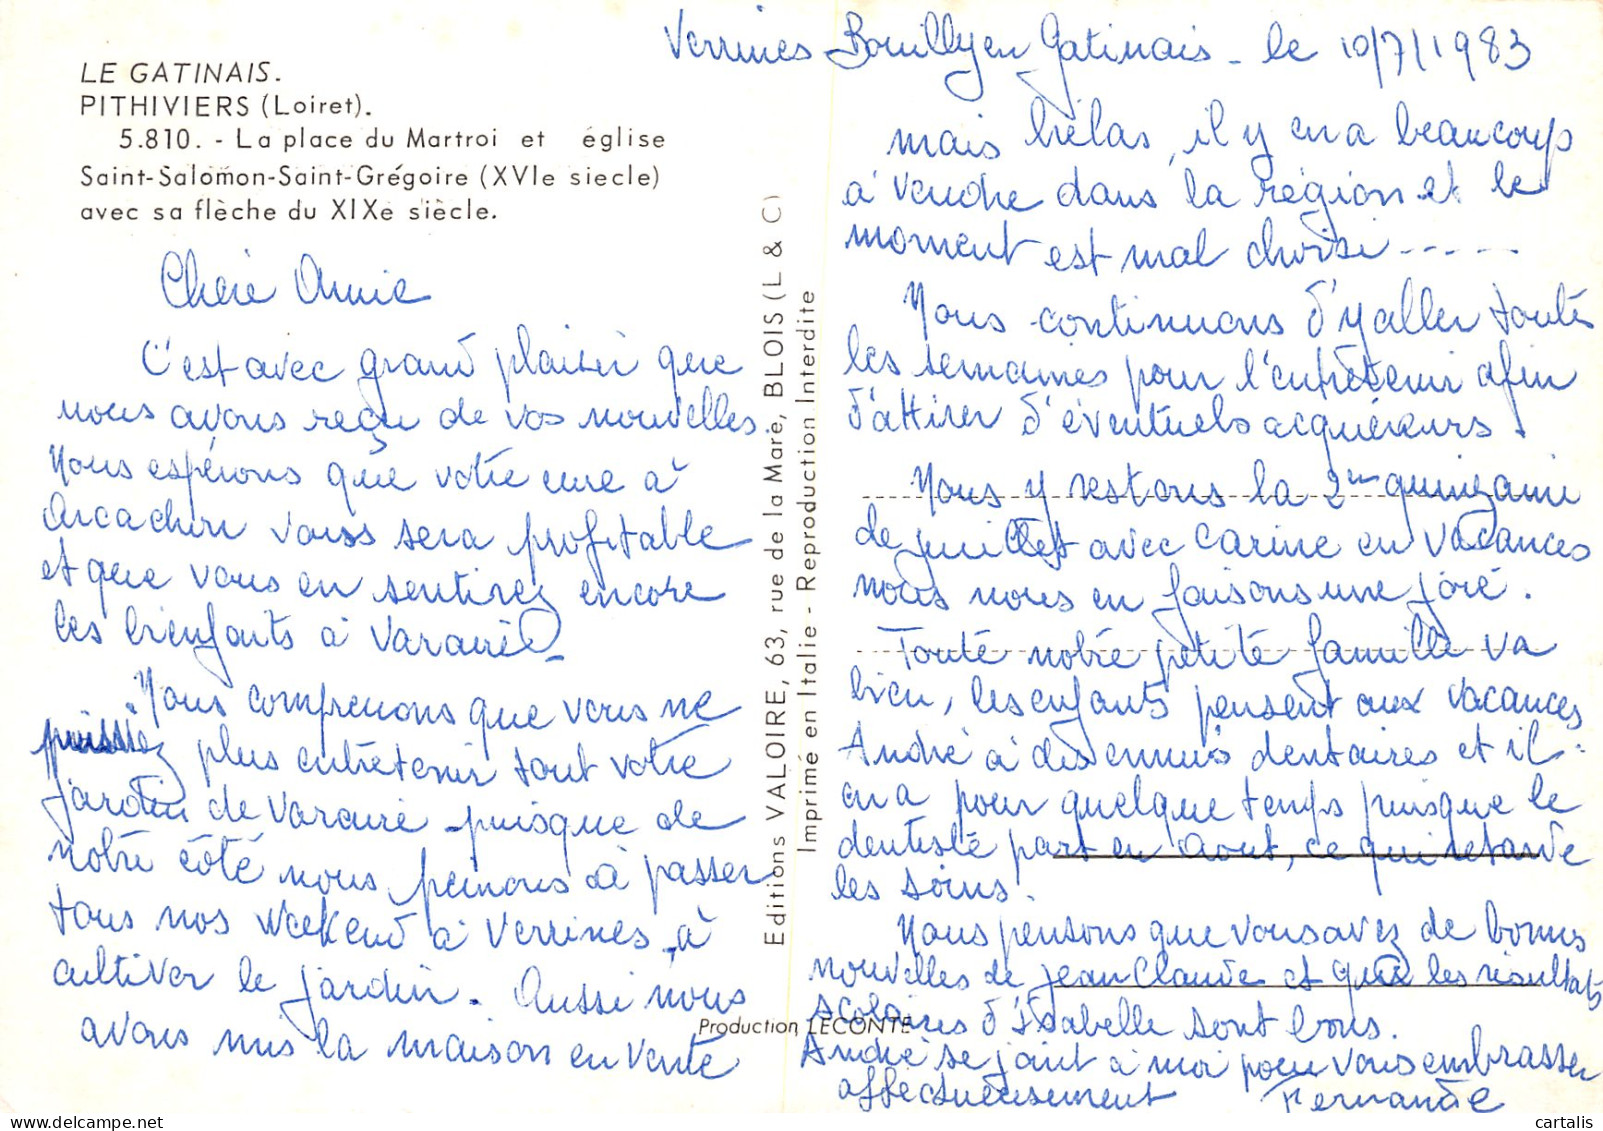 LE GATINAIS.
PITHIVIERS (Loiret).
5.810. - La place du Martroi et église
Saint-Salomon-Saint-Grégoire (XVIe siecle)
avec sa flèche du XIXe siècle.
Chère Amie
C'est avec grand plaisir que
nous avons reçu de vos nouvelles.
Nous espérons que votre cure à
Arcachon vous sera profitable
et que vous en sentirez encore
les bienfaits à Varaire.
Nous comprenons que vous ne
puissiez plus entretenir tout votre
jardin de Varaire puisque de
notre côté nous peinons à passer
tous nos weekend à Verrines, à
cultiver le jardin. Aussi nous
avons mis la maison en vente
Editions VALOIRE, 63, rue de la Mare, BLOIS (L & C)
Imprimé en Italie - Reproduction Interdite
Production LECONTE
Verrines Bouilly en Gatinais - le 10/7/1983
mais hélas, il y en a beaucoup
à vendre dans la région et le
moment est mal choisi -----
Nous continuons d'y aller toutes
les semaines pour l'entretenir afin
d'attirer d'éventuels acquéreurs.
Nous y restons la 2me quinzaine
de juillet avec Carine en vacances
nous nous en faisons une joie.
Toute notre petite famille va
bien, les enfants pensent aux vacances
André a des ennuis dentaires et il
en a pour quelque temps puisque le
dentiste part en Aout, ce qui retarde
les soins.
Nous pensons que vous avez de bonnes
nouvelles de Jean Claude et que les résultats
scolaires d'Isabelle sont bons.
André se joint à moi pour vous embrasser
affectueusement Fernande
cartalis